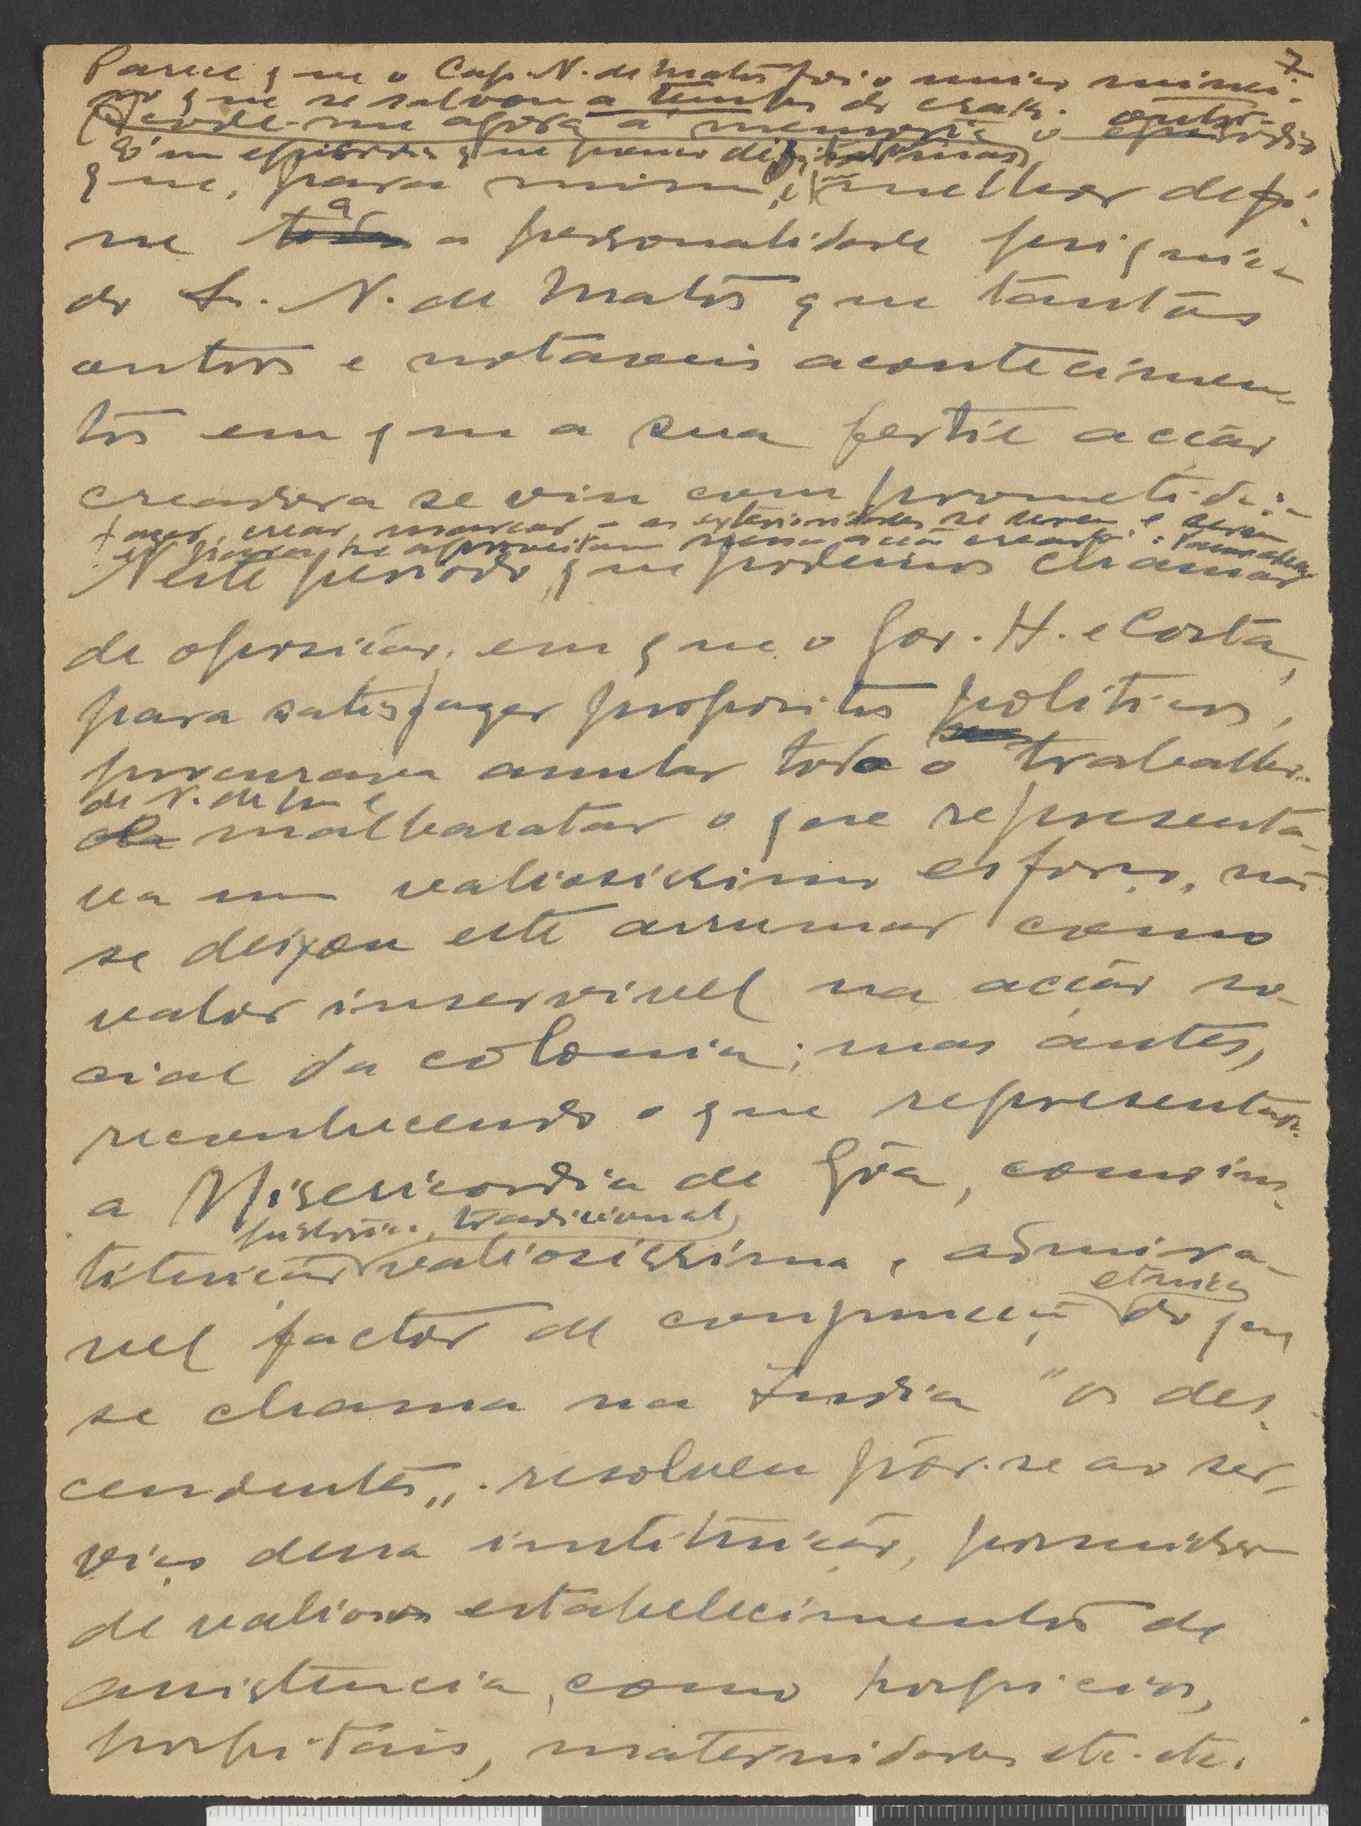 7
Parece que o Cap. N. de Matos foi o unico minei-
ro que se salvou a tempo do crak.
Acode-me agora á memoria o outro episodio
só um episodio que
que, para mim, é melhor defi-
ne a personalidade
do Sr. N. de Matos que tantos
outros e notaveis acontecimen-
tos em que a sua fertil acção
creadora se viu comprometida:
fazer, crear, marcar - as exterioridades se servem e servem
Neste periodo, que podemos chamar
de oposição, em que o Gov. H. e Costa,
para satisfazer propositos politicos,
procurava anular todo o trabalho
de N. de M. e
malbaratar o que representa-
va um valiosissimo esforço, não
se deixou este arrumar como
valor inservivel na acção so-
cial da colonia; mas antes,
reconhecendo o que representava
a Misericordia de Gôa, como ins-
historica, tradicional,
tituição valiosissima, admira-
etnica
vel factor de conjuncção do que
se chama na India "os des-
cendentes", resolveu pôr-se ao ser-
viço dessa instituição, possuidora
de valiosos estabelecimentos de
assistencia, como hospicios,
hospitais, maternidades etc. etc.